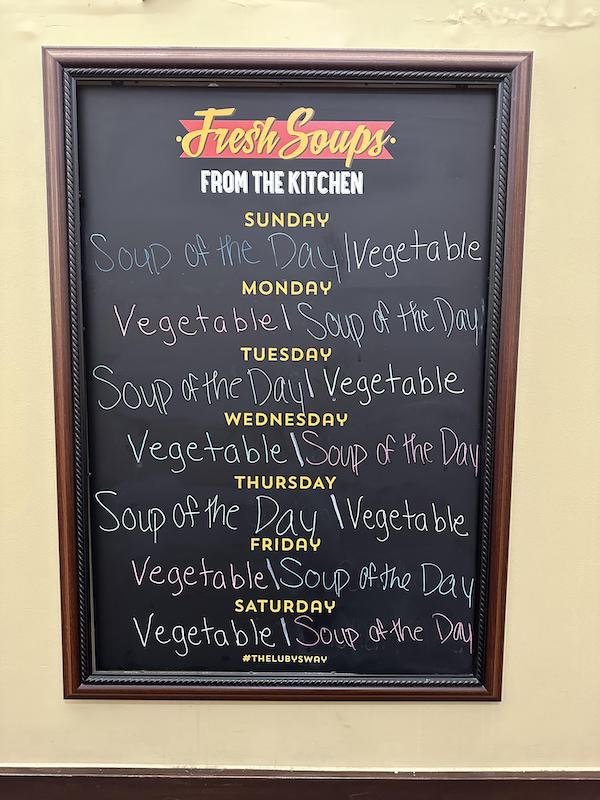 Fresh Soups
FROM THE KITCHEN
SUNDAY
Soup of the Day | Vegetable
MONDAY
Vegetable | Soup of the Day
TUESDAY
Soup of the Day | Vegetable
WEDNESDAY
Vegetable | Soup of the Day
THURSDAY
Soup of the Day \ Vegetable
FRIDAY
Vegetable \ Soup of the Day
SATURDAY
Vegetable | Soup of the Day
#THELUBYSWAY